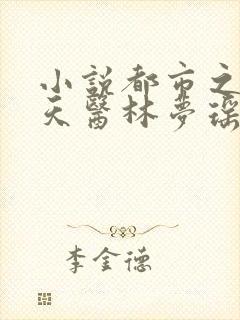 小説都市之
天醫林夢瑤
李金德